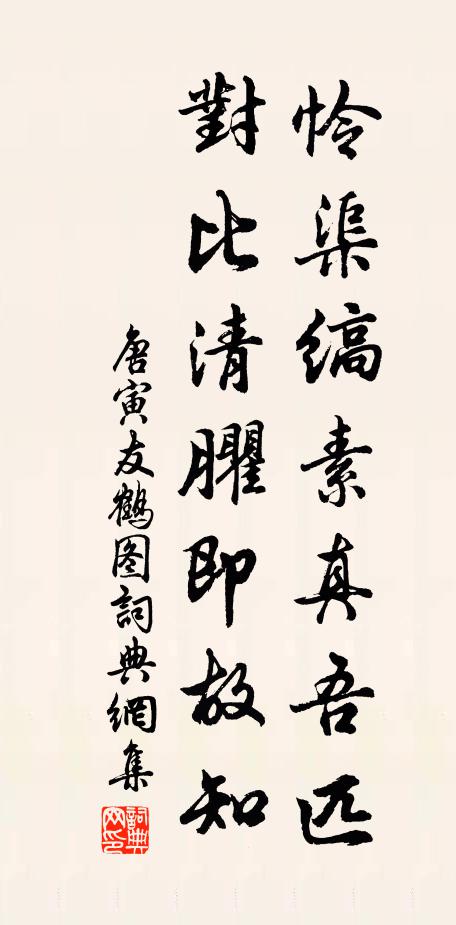 怜渠缟素真吾匹
對比清臞即故知
唐寅友鶴图詞典網集
詞典網印